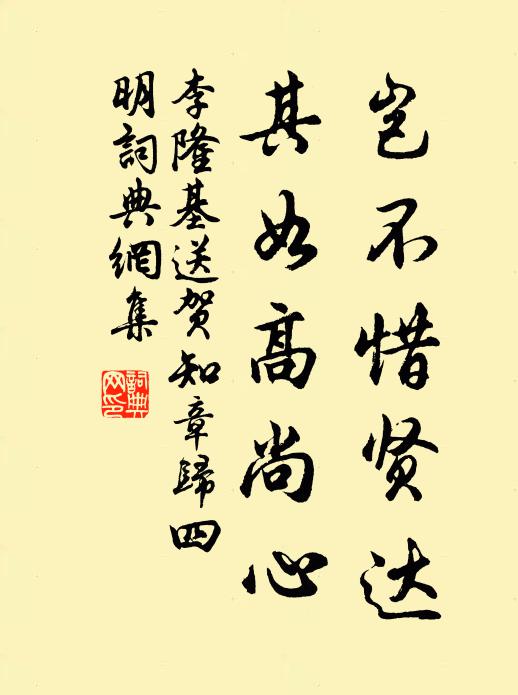 岂不惜贤达
其如高尚心
李隆基送贺知章歸四
明詞典網集
詞典
网印